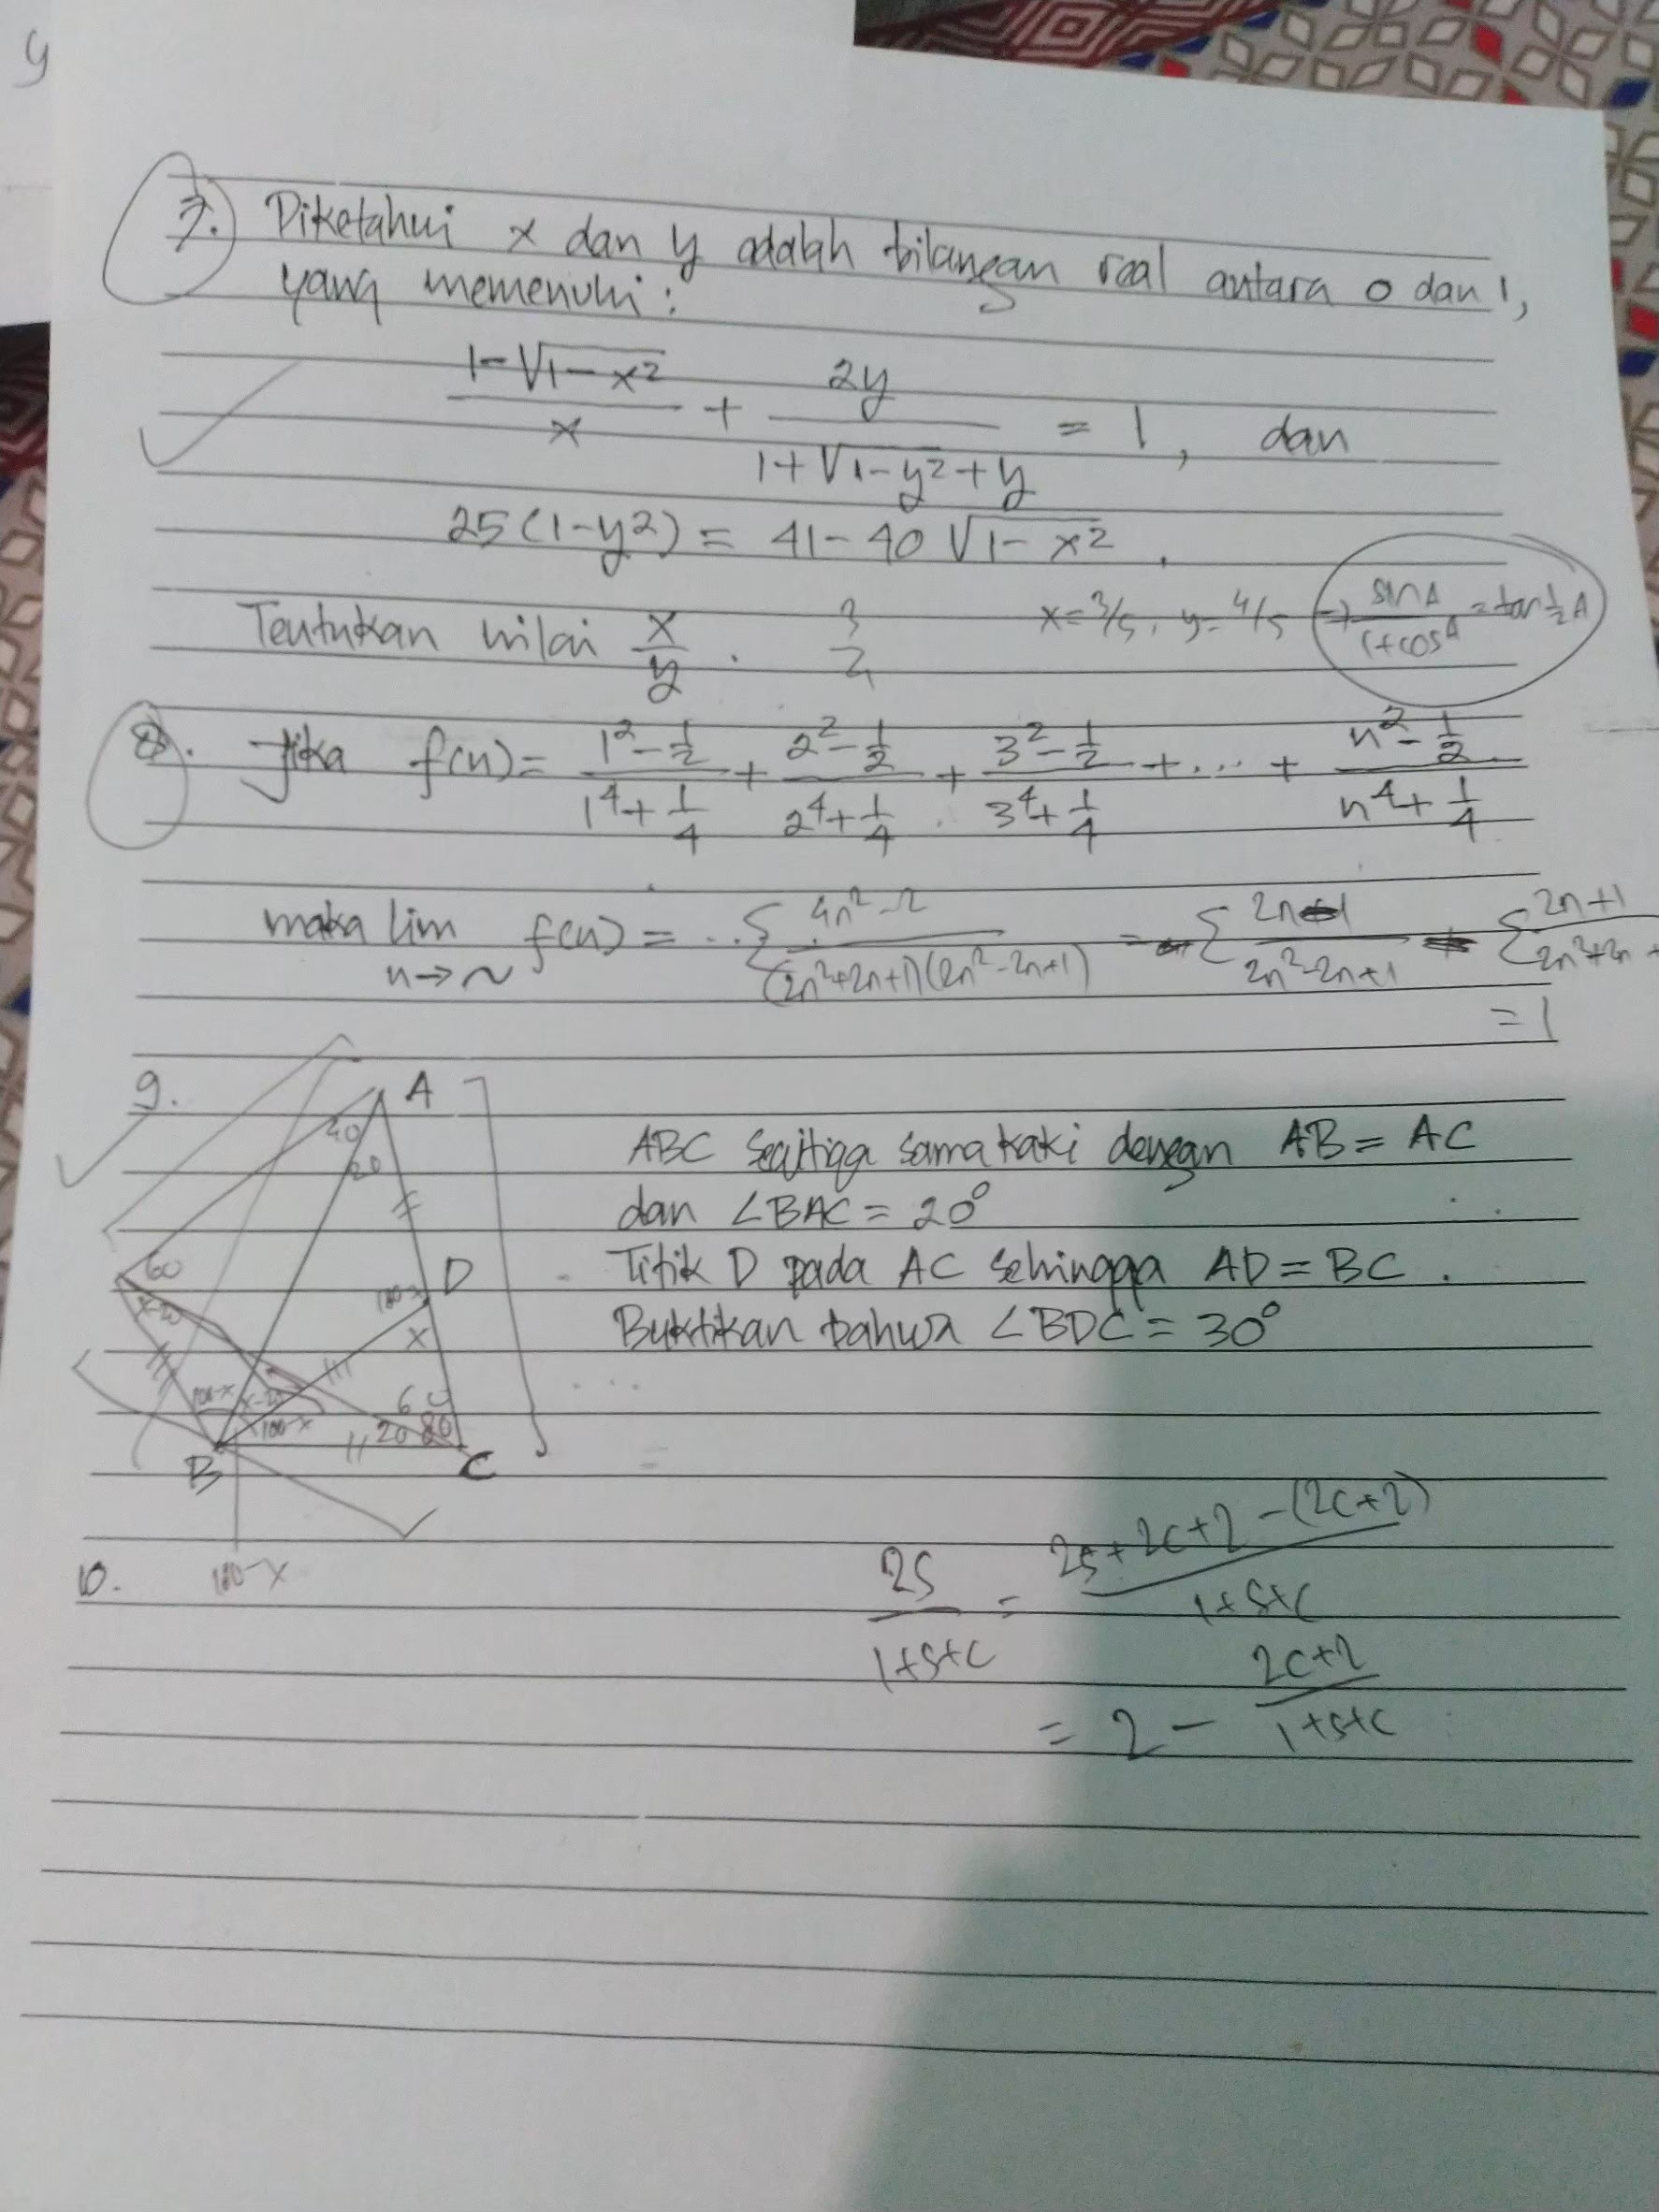 y
7. Diketahui x dan y adalah bilangan real antara 0 dan 1,
yang memenuhi :
(1-√(1-x²))/x + 2y/(1+√(1-y²)+y) = 1, dan
25(1-y²) = 41-40√(1-x²).
Tentukan nilai x/y.
x=3/5, y=4/5 → sin A/(1+cos A) = tan ½A
8. Jika f(n) = (1²-½)/(1⁴+¼) + (2²-½)/(2⁴+¼) + (3²-½)/(3⁴+¼) + ... + (n²-½)/(n⁴+¼)
maka lim n→~ f(n) = .. Σ (4n²-2)/((2n²+2n+1)(2n²-2n+1)) = Σ (2n-1)/(2n²-2n+1) - Σ (2n+1)/(2n²+2n+
= 1
9.
A
40
20
60
D
180-x
x
x-20
100-x
x-20
100-x
60
20 80
B
C
180-x
ABC segitiga samakaki dengan AB = AC
dan ∠BAC = 20°
Titik D pada AC sehingga AD = BC.
Buktikan bahwa ∠BDC = 30°
10.
2s/(1+s+c) = (2s+2c+2-(2c+2))/(1+s+c)
= 2 - (2c+2)/(1+s+c)